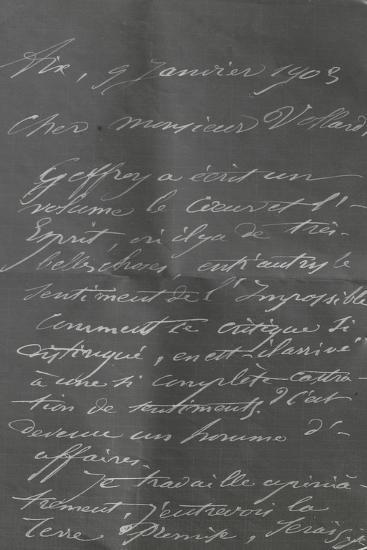 Aix, 9 Janvier 1903
Cher monsieur Vollard,
Geffroy a écrit un
volume le Coeur et l'-
Esprit, où il y a de très-
belles choses entr'autres le
sentiment de l'Impossible
Comment ce critique si
distingué, en est-il arrivé
à une si complète castra-
tion de sentiments. C'est
devenu un homme d'-
affaires.
Je travaille opiniâ-
trement, j'entrevois la
Terre promise, Serais-je